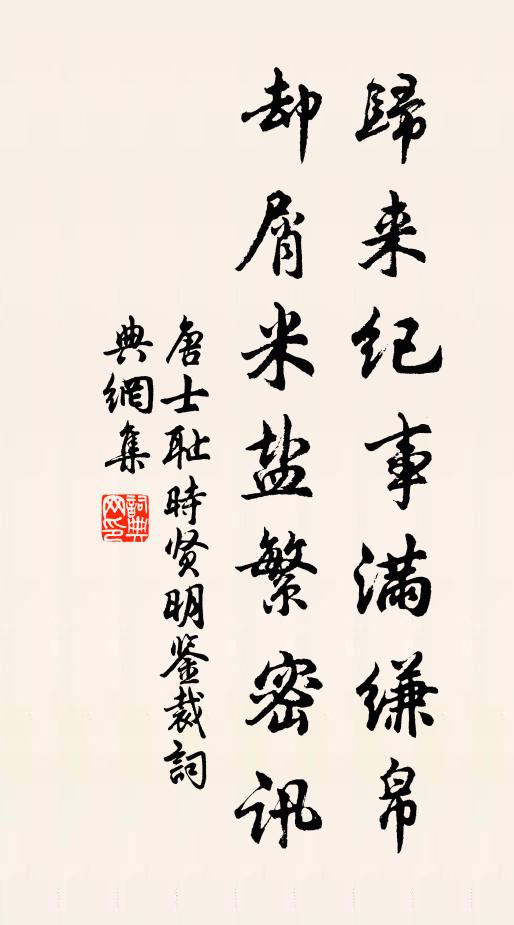 歸来纪事满缣帛
却屑米盐繁密讯
唐士耻時贤明鉴裁詞
典網集
詞典網印